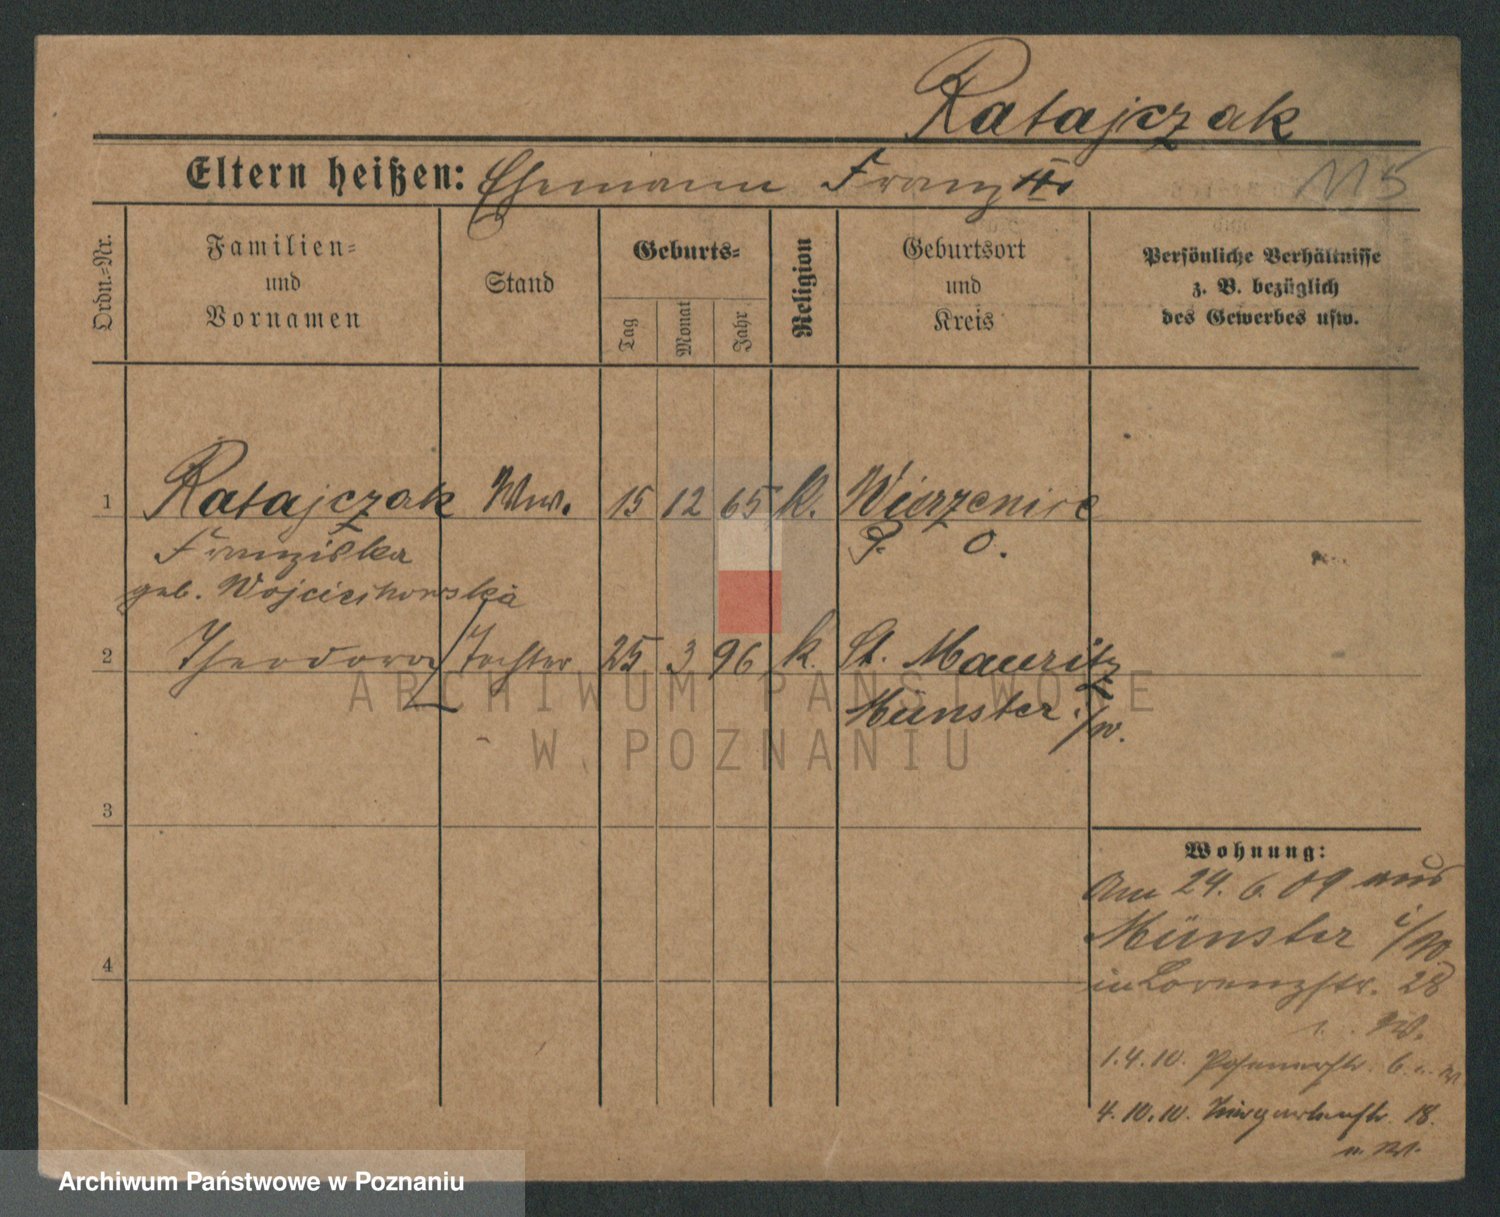 Ratajczak
Eltern heißen: Ehemann Franz
115
Ordn.=Nr.
Familien=
und
Vornamen
Stand
Geburts=
Tag
Monat
Jahr
Religion
Geburtsort
und
Kreis
Persönliche Verhältnisse
z. B. bezüglich
des Gewerbes usw.
1 Ratajczak Ww. 15 12 65 k. Wierzenice
Franziska P. O.
geb. Wojciechowska
2 Theodora Tochter 25 3 96 k. St. Mauritz
Münster i/W.
ARCHIWUM PAŃSTWOWE
W POZNANIU
3
Wohnung:
Am 24. 6. 09 aus
Münster i/W.
4
in Lorenzstr. 28
W.
1.4.10. Posenerstr. 6
4.10.10. 18.
Archiwum Państwowe w Poznaniu